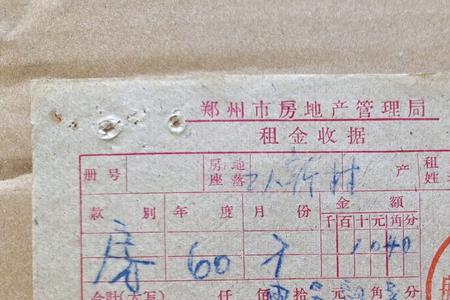 郑州市房地产管理局
租金收据
册号 房地座落 工人新村 产 租姓
款別 年度 月份 金額
千百十元角分
房 60 1040
合計(大写) 仟 佰 拾 元 角 分